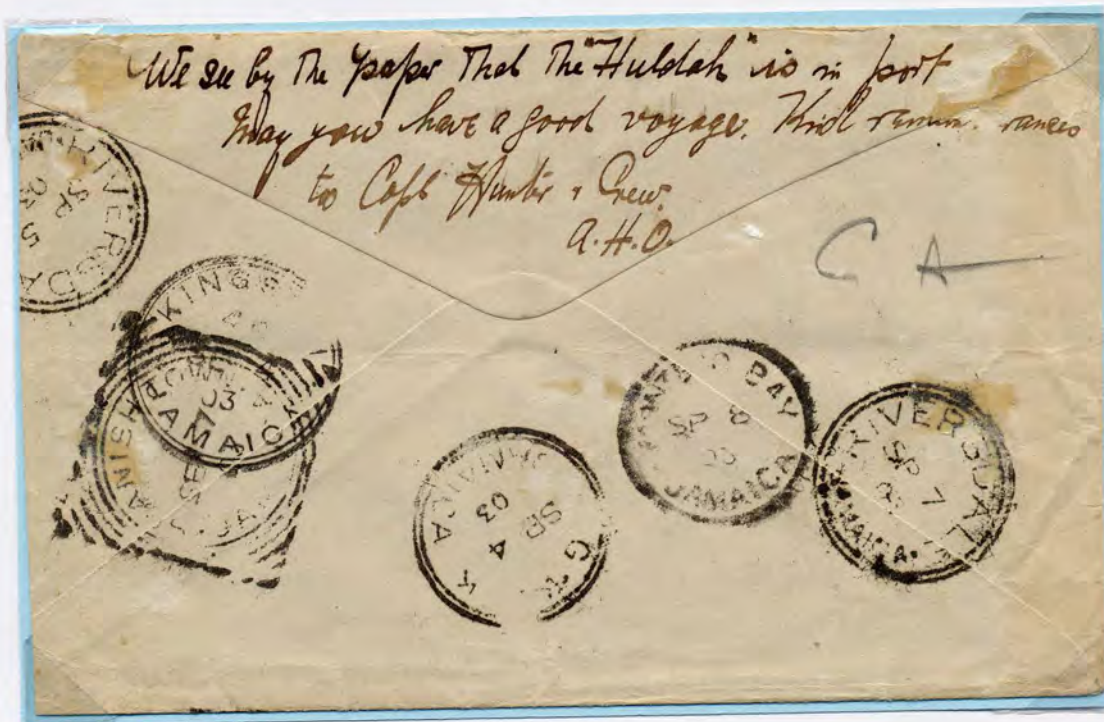 We see by the paper that the "Huldah" is in port
May you have a good voyage. Kind remem. rances
to Capt Hunter & Crew.
A.H.O.
C A
RIVERSDA
SP 5
03
KINGS
03
JAMAICA
ANISH TOWN
SP 4
03
JAMAICA
BAY
SP 8
03
JAMAICA
RIVERSDAL
SP 7
03
JAMAICA